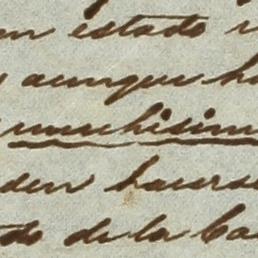 en estado
aunque ha
muchisim
den hacerse
do de la Ca